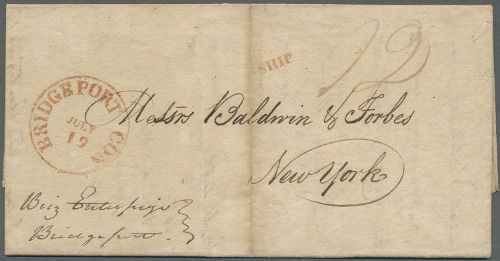 SHIP
12
BRIDGEPORT CON
JULY
19
Messrs Baldwin & Forbes
New York
Brig Enterprize
Bridgeport.